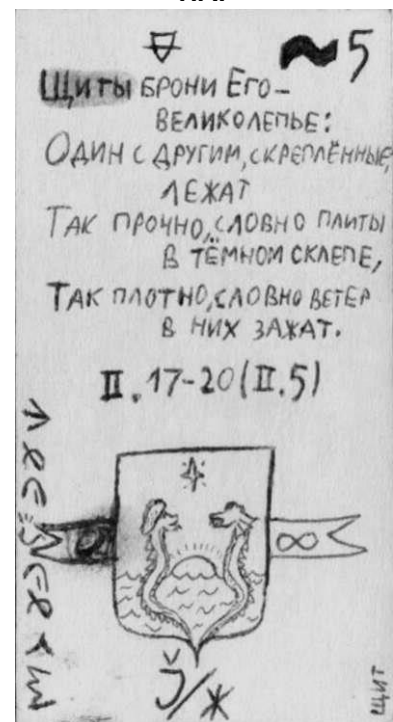 ~5
Щиты брони Его –
великолепье:
Один с другим, скреплённые,
лежат
Так прочно, словно плиты
в тёмном склепе,
Так плотно, словно ветер
в них зажат.
II. 17-20 (II.5)
∞
J/Ж
щит